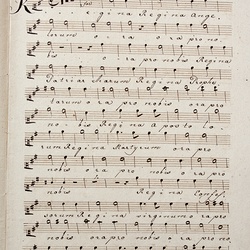 Regina Regina Ange,
lorum o. ra ora pro no,
bis o. ra pro nobis Regina
Patriar Marum Regina Prophe
tarum ora pro nobis ora pro
no. bis Regina Aposto lo.
rum Regina Martyrum ora pro
nobis ora pro nobis ora pro
nobis Regina Confes
sorum Regina virginum ora pro
nobis ora pro nobis ora pro